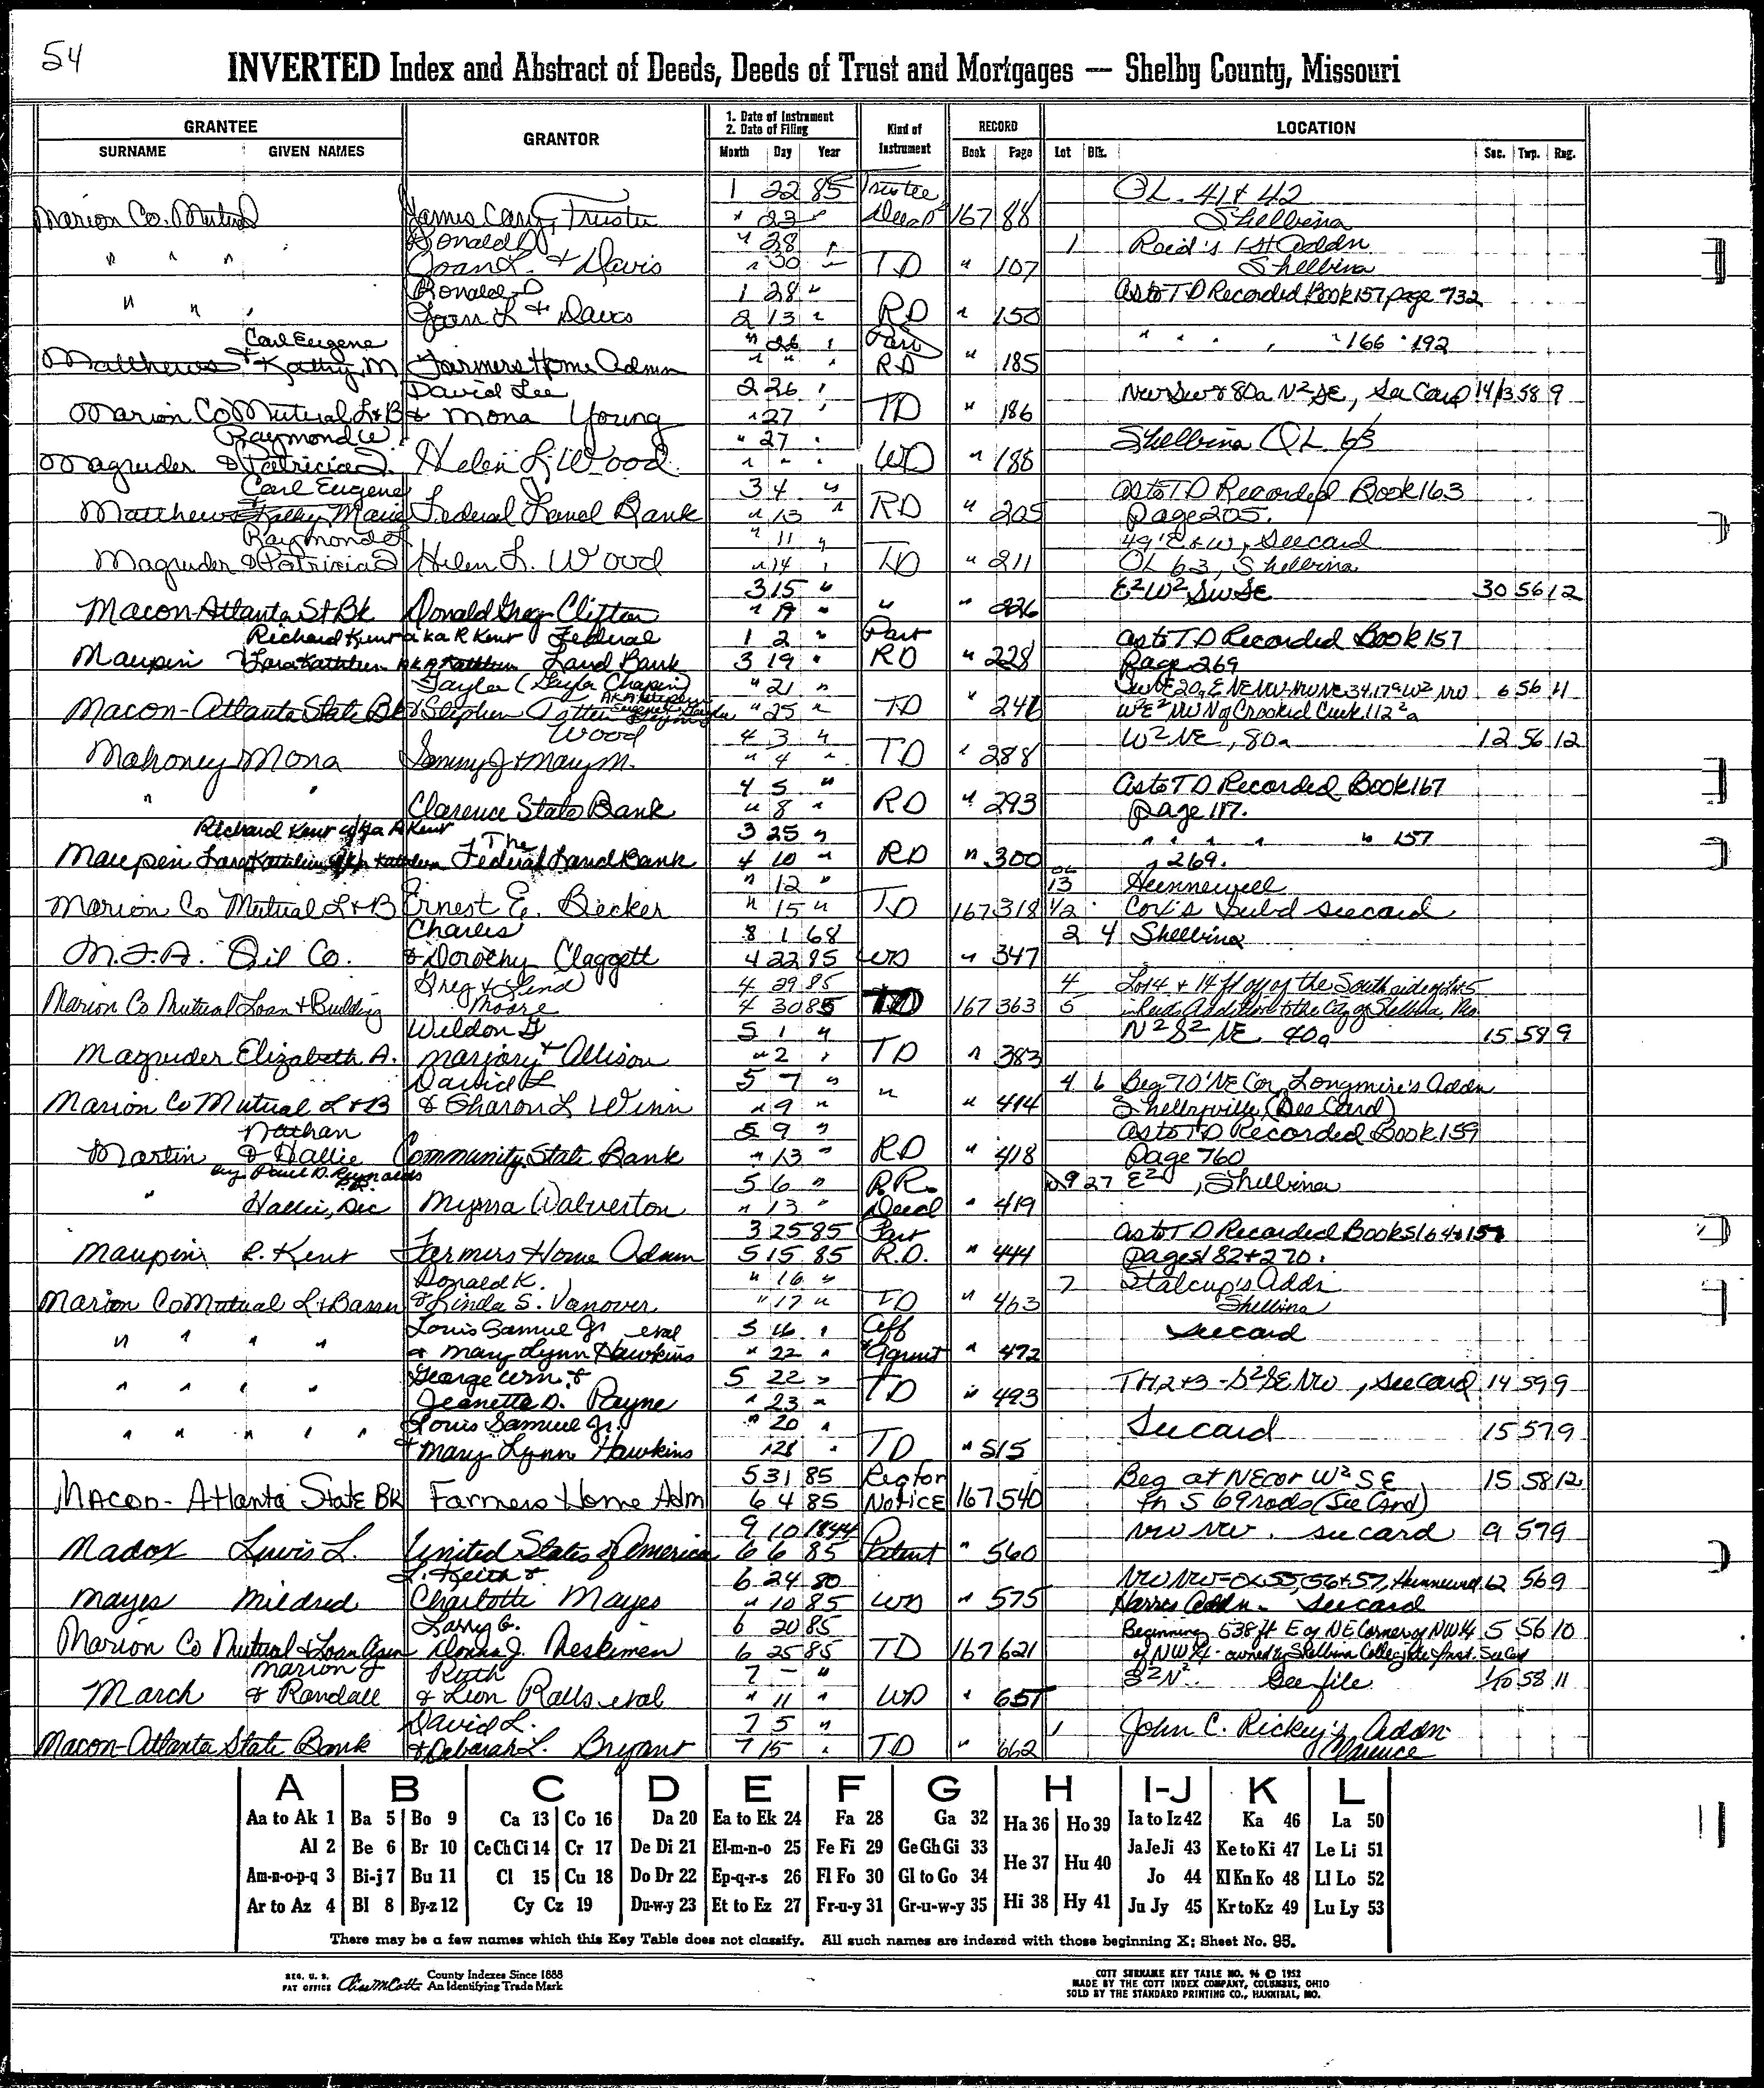 54
INVERTED Index and Abstract of Deeds, Deeds of Trust and Mortgages — Shelby County, Missouri
GRANTEE GRANTOR 1. Date of Instrument 2. Date of Filing Kind of Instrument RECORD LOCATION
SURNAME GIVEN NAMES Month Day Year Book Page Lot Blk. Sec. Twp. Rng.
1 22 85 Trustee OL. 41 & 42
Marion Co. Mutual James Cary, Trustee " 23 " Deed 167 88 Shelbina
Ronald D " 28 " 1 Reid's 1st Addn
" " " Joan L. & Davis " 30 " TD " 107 Shelbina
Ronald D 1 28 " As to TD Recorded Book 157 page 732
" " " Joan L & Davis 2 13 " RD " 150
Carl Eugene " 26 " Part " " " " " 166 " 192
Matthews & Kathy M Farmers Home Admn " " " RD " 185
David Lee 2 26 " NWSW & 80a N²SE, See Card 14/13 58 9
Marion Co Mutual L&B & Mona Young " 27 " TD " 186
Raymond W. " 27 " Shelbina OL 63
Magruder & Patricia D. Helen L. Wood " " " WD " 188
Carl Eugene 3 4 " As to TD Recorded Book 163
Matthews & Kathy Marie Federal Land Bank " 13 " RD " 205 page 205.
Raymond " 11 " 49' E & W, See card
Magruder & Patricia D Helen L. Wood " 14 " TD " 211 OL 63, Shelbina
3 15 " E²W²SWSE 30 56 12
Macon-Atlanta St Bk Donald Greg Clifton " 19 " " " 226
Richard Kent aka R Kent Federal 1 2 " Part As to TD Recorded Book 157
Maupin & Lara Kathleen AKA Kathleen Land Bank 3 19 " RD " 228 Page 269
Gayla (Gayla Chapin) " 21 " 6 56 11
Macon-Atlanta State Bk & Stephen " 25 " TD " W²E²NW N of Crooked Creek 112²a
Wood 4 3 " W²NE, 80a 12 56 12
Mahoney Mona Sammy J & Mary M. " 4 " TD " 288
4 5 " As to TD Recorded Book 167
" " Clarence State Bank " 8 " RD " 293 page 117.
Richard Kent a/k/a R Kent The 3 25 " " " " " " 157
Maupin Lara Kathleen a/k/a Kathleen Federal Land Bank 4 10 " RD " 300 " 269.
" 12 " OL 13 Hunnewell
Marion Co Mutual L&B Ernest E. Becker " 15 " TD 167 318 1/2 Cox's Subd see card
Charles 8 1 68 2 4 Shelbina
M.F.A. Oil Co. & Dorothy Claggett 4 22 85 WD " 347
Greg & 4 29 85 4 Lot 4 & 14 ft off of the South side of Lot 5
Marion Co Mutual Loan & Building Moore 4 30 85 TD 167 363 5 in Reids Addition to the City of Shelbina, Mo
Weldon G 5 1 " N²S²NE 40a 15 58 9
Magruder Elizabeth A. Marjory & Allison " 2 " TD " 383
David L 5 7 " 4 6 Beg 70' NE Cor Longmire's Addn
Marion Co Mutual L&B & Sharon L Winn " 9 " " " 414 Shelbyville (See Card)
Nathan 5 9 " As to TD Recorded Book 159
Martin & Hallie Community State Bank " 13 " RD " 418 Page 760
by Paul D. Reynolds P.R. 5 6 " P.R. 9 27 E², Shelbina
" Hallie, Dec Myrra Walverton " 13 " Deed " 419
3 25 85 Part As to TD Recorded Books 164 & 157
Maupin R. Kent Farmers Home Admn 5 15 85 R.D. " 444 pages 182 & 270.
Donald K. " 16 " 7 Stalcup's Addn
Marion Co Mutual L & B Assn & Linda S. Vanover " 17 " TD " 463 Shelbina
Louis Samuel Jr etal 5 16 " Aff See card
" " " " & Mary Lynn Hawkins " 22 " Agmnt " 472
George Wm. & 5 22 " TH 2 & 3 - S²SENW, See Card 14 59 9
" " " " Jeanette D. Payne " 23 " TD " 493
Louis Samuel Jr. " 20 " See card 15 57 9
" " " " " & Mary Lynn Hawkins " 28 " TD " 515
5 31 85 Req for Beg at NE cor W²SE 15 58 12
Macon-Atlanta State Bk Farmers Home Adm 6 4 85 Notice 167 540 Th S 69 rods (See Card)
9 10 1844 NW NW. See card 9 57 9
Madox Lewis L. United States of America 6 6 85 Patent " 560
L. Keith & 6 24 80 NW NW - OL 55, 56 & 57, Hunnewell 12 56 9
Mayes Mildred Charlotte Mayes " 10 85 WD " 575 Harris Addn. See card
Larry G. 6 20 85 Beginning 538 ft E of NE Corner of NW 1/4 5 56 10
Marion Co Mutual & Loan Assn Donna J. Meskimen 6 25 85 TD 167 621 of NW 1/4 - owned by Shelbina Collegiate Inst. See Card
Marion J Ruth 7 - " S²N² See file 1/10 58 11
March & Randall & Leon Ralls etal " 11 " WD " 657
David L. 7 5 " 1 John C. Rickey's Addn
Macon-Atlanta State Bank & Deborah L. Bryant 7 15 " TD " 662 Clarence
A B C D E F G H I-J K L
Aa to Ak 1 Ba 5 Bo 9 Ca 13 Co 16 Da 20 Ea to Ek 24 Fa 28 Ga 32 Ha 36 Ho 39 Ia to Iz 42 Ka 46 La 50
Al 2 Be 6 Br 10 Ce Ch Ci 14 Cr 17 De Di 21 El-m-n-o 25 Fe Fi 29 Ge Gh Gi 33 He 37 Hu 40 Ja Je Ji 43 Ke to Ki 47 Le Li 51
Am-n-o-p-q 3 Bi-j 7 Bu 11 Cl 15 Cu 18 Do Dr 22 Ep-q-r-s 26 Fl Fo 30 Gl to Go 34 Jo 44 Kl Kn Ko 48 Ll Lo 52
Ar to Az 4 Bl 8 By-z 12 Cy Cz 19 Du-w-y 23 Et to Ez 27 Fr-u-y 31 Gr-u-w-y 35 Hi 38 Hy 41 Ju Jy 45 Kr to Kz 49 Lu Ly 53
There may be a few names which this Key Table does not classify. All such names are indexed with those beginning X; Sheet No. 95.
REG. U. S. PAT OFFICE County Indexes Since 1888 An Identifying Trade Mark
COTT SURNAME KEY TABLE NO. 96 © 1952
MADE BY THE COTT INDEX COMPANY, COLUMBUS, OHIO
SOLD BY THE STANDARD PRINTING CO., HANNIBAL, MO.